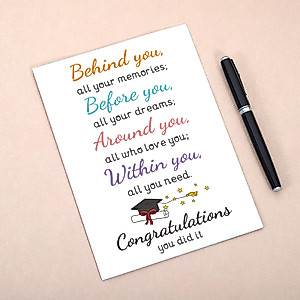 Behind you,
all your memories;
Before you,
all your dreams;
Around you,
all who love you;
Within you,
all you need.
Congratulations
you did it